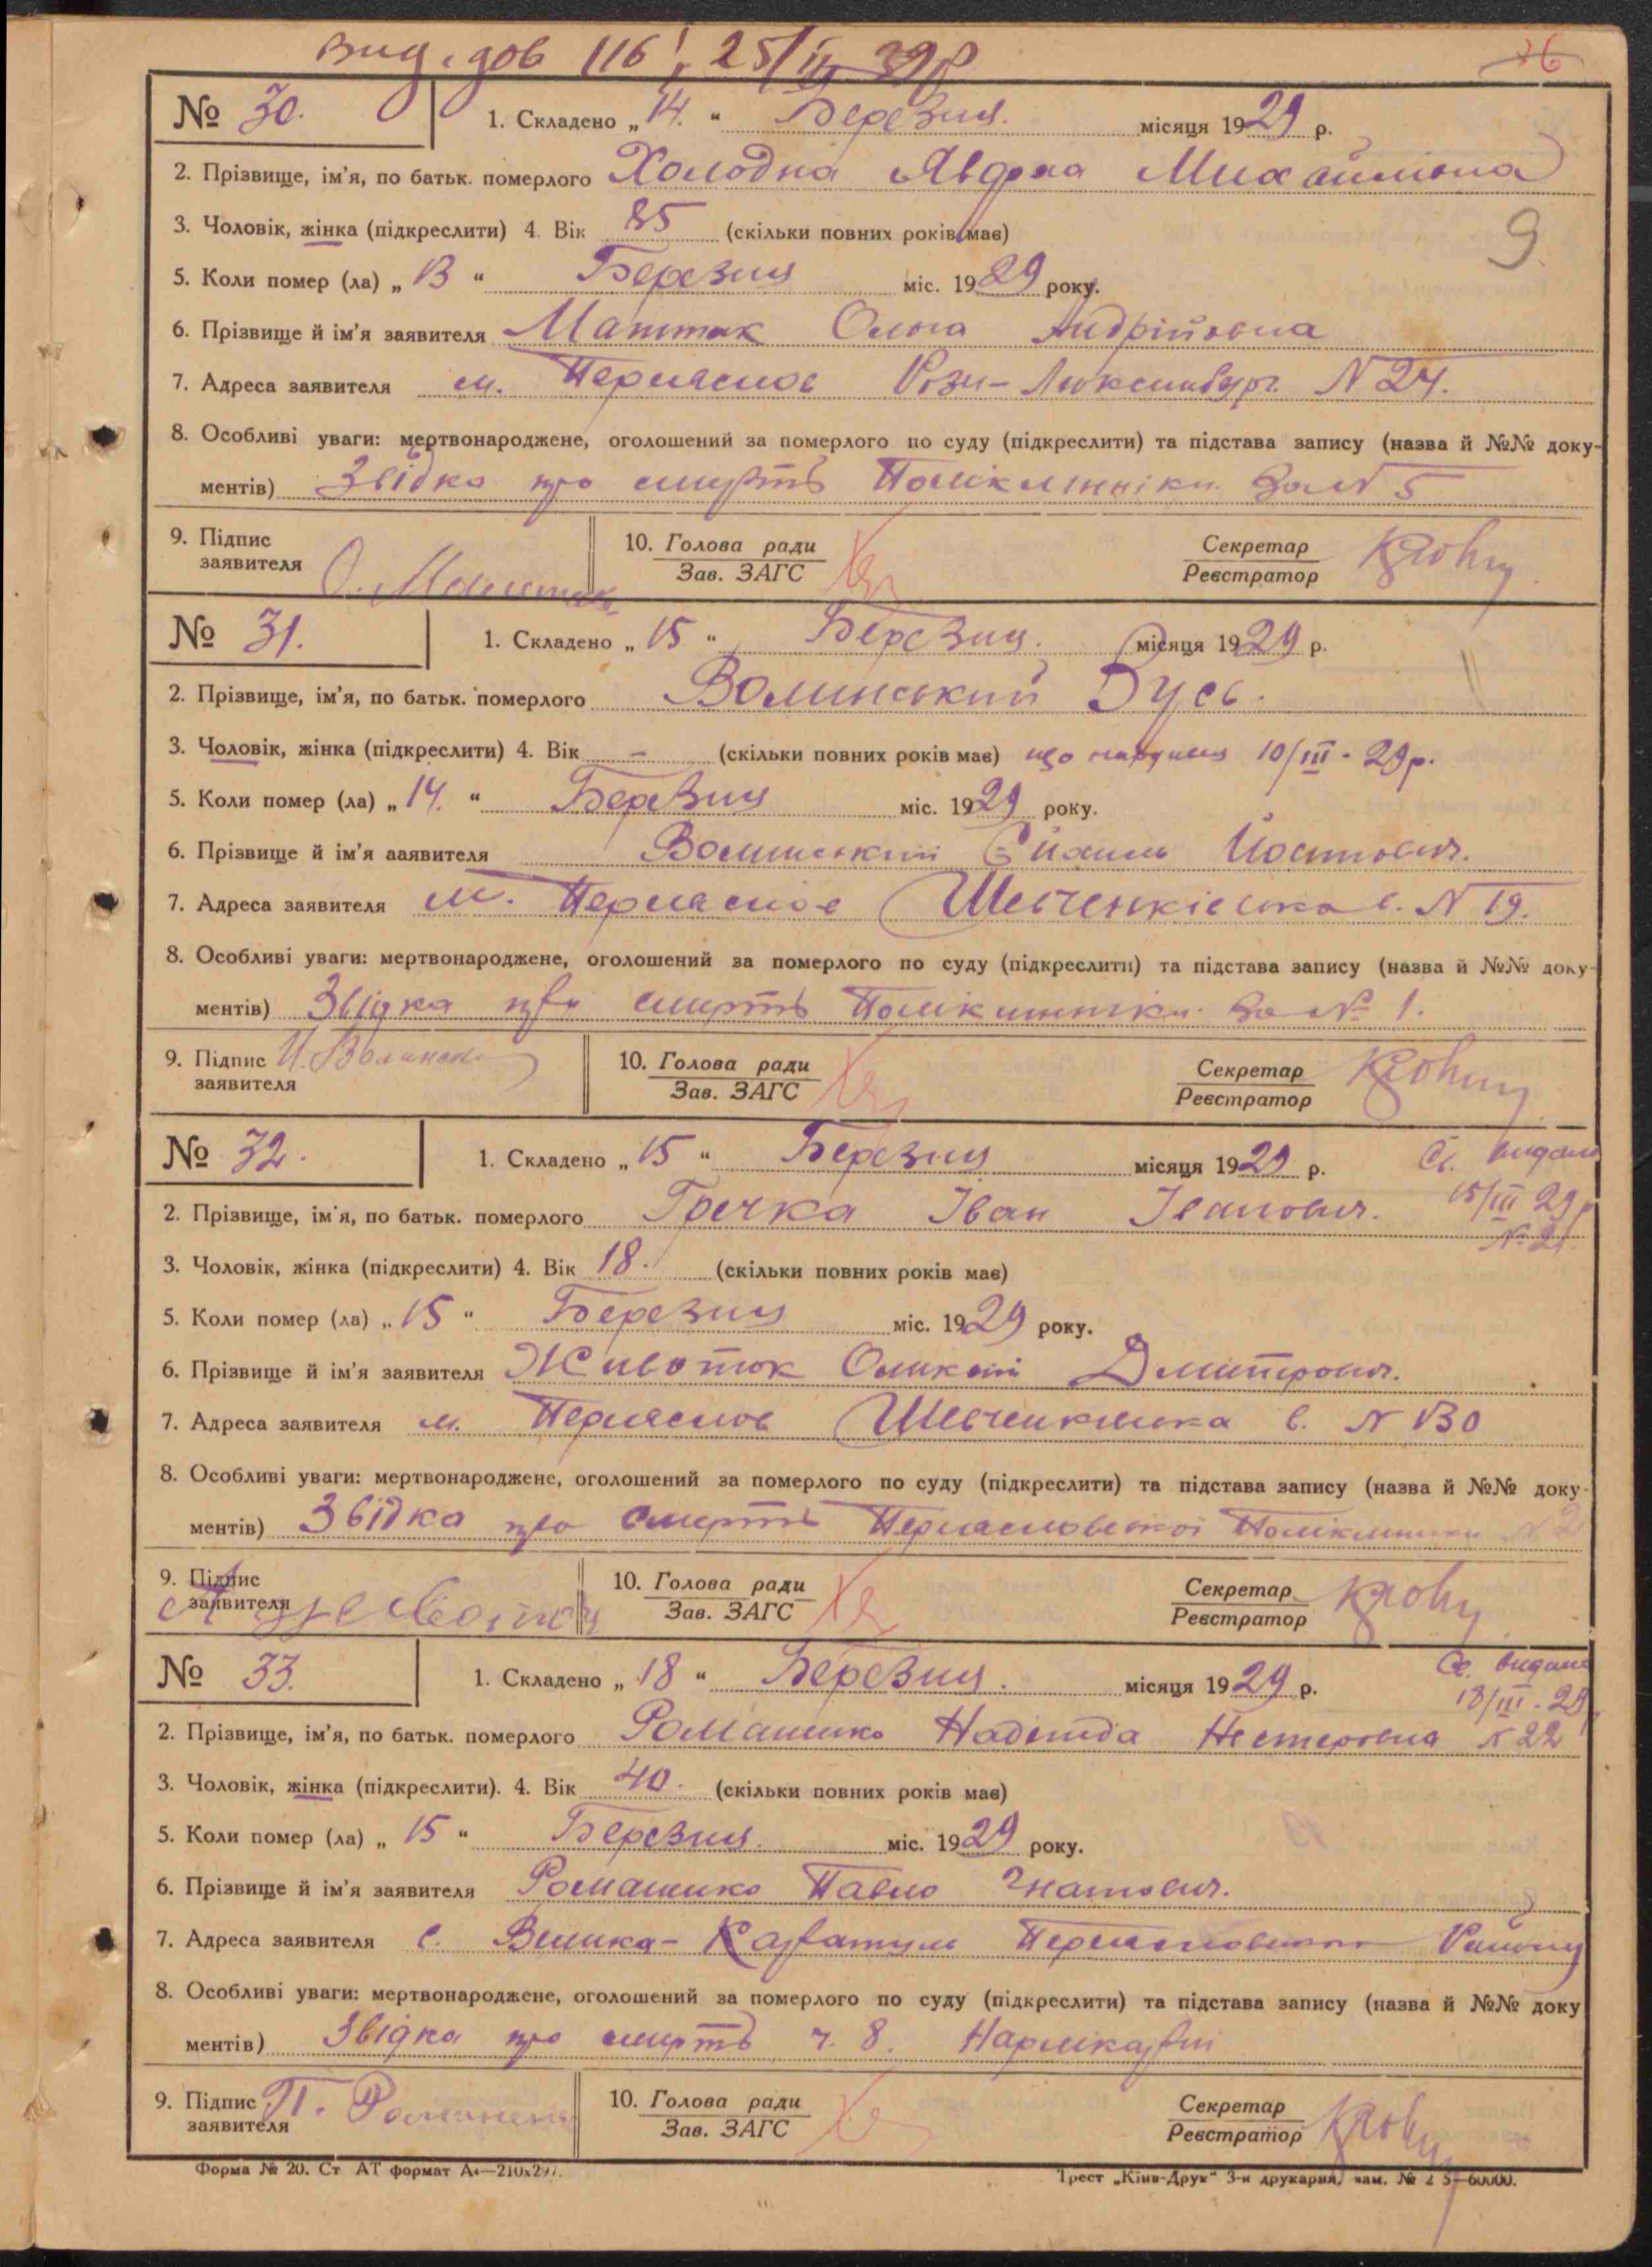 вид. дов 116 25/IV 39р
36
№ 30. 1. Складено „ 14. “ Березня. місяця 1929 р.
2. Прізвище, ім'я, по батьк. померлого Холодна Явдоха Михайлівна
3. Чоловік, жінка (підкреслити) 4. Вік 85 (скільки повних років має)
9
5. Коли помер (ла) „ 13 “ Березня міс. 1929 року.
6. Прізвище й ім'я заявителя Ольга Андріївна
7. Адреса заявителя м. Переяслов Рози-Люксембург. N 24.
8. Особливі уваги: мертвонароджене, оголошений за померлого по суду (підкреслити) та підстава запису (назва й №№ доку-
ментів) Звідка про смерть Поліклініки за N 5
9. Підпис заявителя 10. Голова ради Зав. ЗАГС Секретар Реєстратор
№ 31. 1. Складено „ 15 “ Березня. місяця 1929 р.
2. Прізвище, ім'я, по батьк. померлого Волинський Дусь.
3. Чоловік, жінка (підкреслити) 4. Вік - (скільки повних років має) що народився 10/III - 29р.
5. Коли помер (ла) „ 14. “ Березня міс. 1929 року.
6. Прізвище й ім'я заявителя Волинський
7. Адреса заявителя м. Переяслов Шевченківська в. N 19.
8. Особливі уваги: мертвонароджене, оголошений за померлого по суду (підкреслити) та підстава запису (назва й №№ доку-
ментів) Звідка про смерть Поліклініки за № 1.
9. Підпис заявителя 10. Голова ради Зав. ЗАГС Секретар Реєстратор
№ 32. 1. Складено „ 15 “ Березня місяця 1929 р. Св. видано
15/III 29р
№ 21.
2. Прізвище, ім'я, по батьк. померлого Гречка Іван Іванович.
3. Чоловік, жінка (підкреслити) 4. Вік 18. (скільки повних років має)
5. Коли помер (ла) „ 15 “ Березня міс. 1929 року.
6. Прізвище й ім'я заявителя Животок Дмитрович.
7. Адреса заявителя м. Переяслов Шевченківська в. N 130
8. Особливі уваги: мертвонароджене, оголошений за померлого по суду (підкреслити) та підстава запису (назва й №№ доку-
ментів) Звідка про смерть Переяславської Поліклініки N 2
9. Підпис заявителя 10. Голова ради Зав. ЗАГС Секретар Реєстратор
№ 33. 1. Складено „ 18 “ Березня. місяця 1929 р. Св. видано
18/III - 29
2. Прізвище, ім'я, по батьк. померлого Ромашко Надежда Нестеровна N 22
3. Чоловік, жінка (підкреслити). 4. Вік 40. (скільки повних років має)
5. Коли помер (ла) „ 15 “ Березня. міс. 1929 року.
6. Прізвище й ім'я заявителя Ромашко Павло Гнатович.
7. Адреса заявителя с. Велика-Каратуль Переяславського Району
8. Особливі уваги: мертвонароджене, оголошений за померлого по суду (підкреслити) та підстава запису (назва й №№ доку
ментів) Звідка про смерть ч. 8. Нарлікарні
9. Підпис заявителя 10. Голова ради Зав. ЗАГС Секретар Реєстратор
Форма № 20. Ст АТ формат А4—210х297.
Трест „Київ-Друк“ 3-я друкарня, зам. № 2 5—60000.